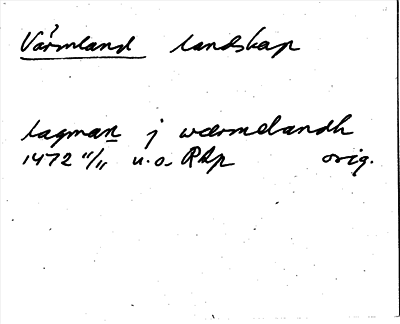 Värmland landskap
lagman j wærmelandh
1472 11/11 u.o. RAp orig.